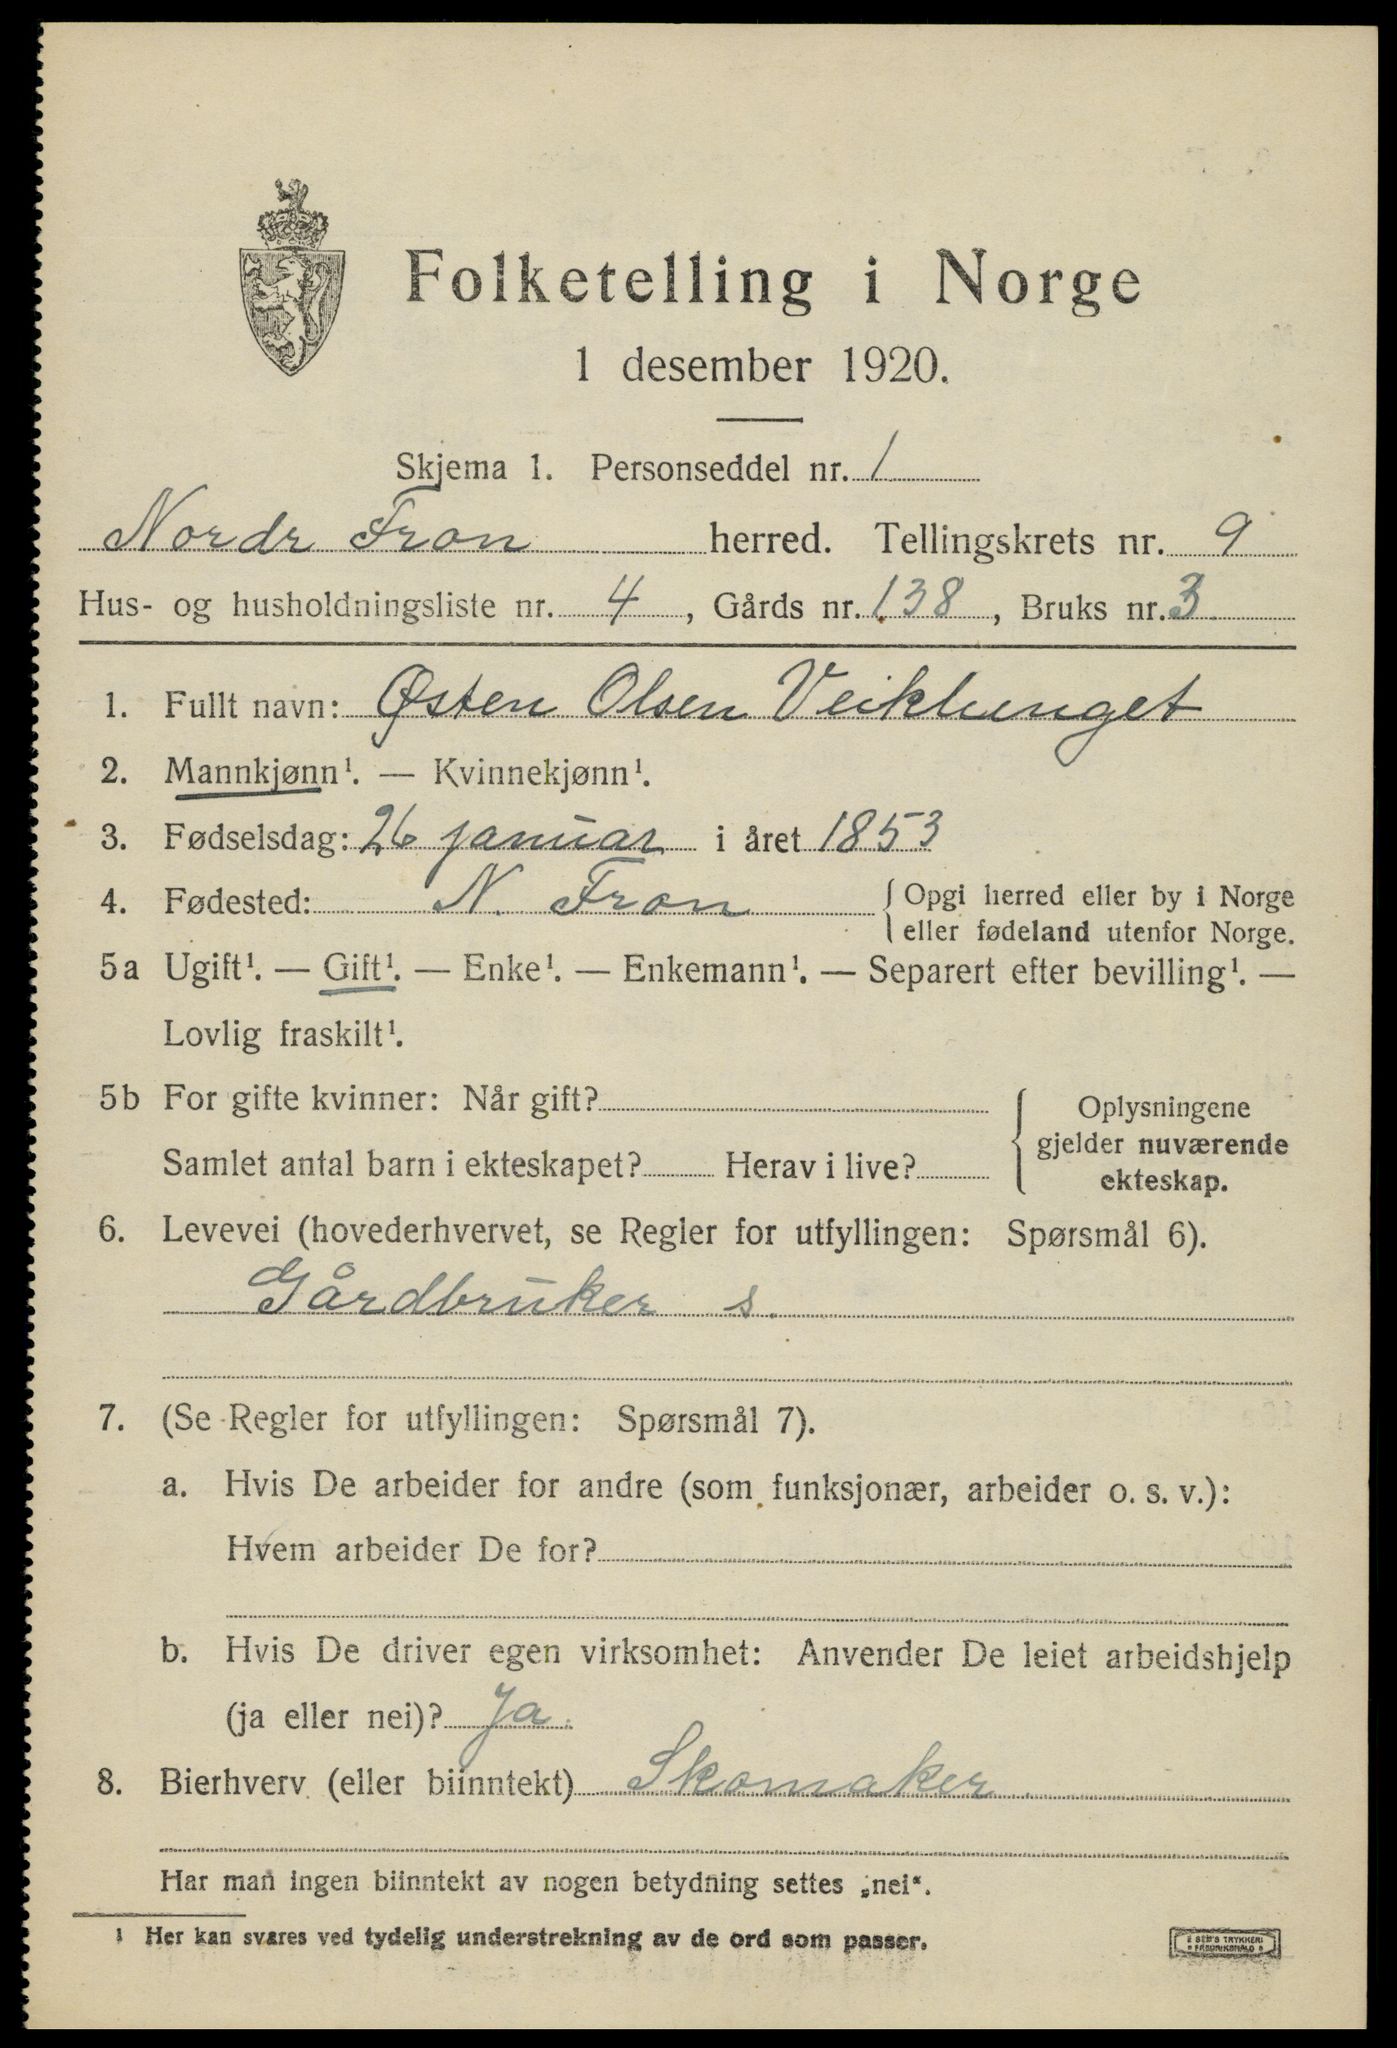 Folketelling i Norge
1 desember 1920.
Skjema 1. Personseddel nr. 1
Nordr Fron herred. Tellingskrets nr. 9
Hus- og husholdningsliste nr. 4, Gårds nr. 138, Bruks nr. 3
1. Fullt navn: Østen Olsen Veiklunget
2. Mannkjønn¹. — Kvinnekjønn¹.
3. Fødselsdag: 26 januar i året 1853
4. Fødested: N. Fron { Opgi herred eller by i Norge
eller fødeland utenfor Norge.
5a Ugift¹. — Gift¹. — Enke¹. — Enkemann¹. — Separert efter bevilling¹. —
Lovlig fraskilt¹.
5b For gifte kvinner: Når gift?
Samlet antal barn i ekteskapet? Herav i live?
{ Oplysningene
gjelder nuværende
ekteskap.
6. Levevei (hovederhvervet, se Regler for utfyllingen: Spørsmål 6).
Gårdbruker s.
7. (Se Regler for utfyllingen: Spørsmål 7).
a. Hvis De arbeider for andre (som funksjonær, arbeider o. s. v.):
Hvem arbeider De for?
b. Hvis De driver egen virksomhet: Anvender De leiet arbeidshjelp
(ja eller nei)? Ja.
8. Bierhverv (eller biinntekt) Skomaker.
Har man ingen biinntekt av nogen betydning settes „nei“.
¹ Her kan svares ved tydelig understrekning av de ord som passer.
SEM'S TRYKKERI
FREDRIKSHALD